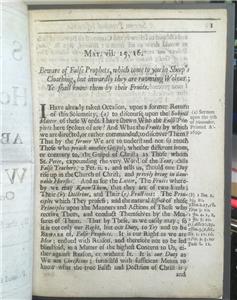 1
MAT. vii. 15, 16.
Beware of False Prophets, which come to you in Sheep's
Cloathing, but inwardly they are ravening Wolves;
Ye shall know them by their Fruits.
I Have already taken Occasion, upon a former Return
of this Solemnity, (a) to discourse upon the Subject
Matter of these Words. I have shewn Who the False Pro-
phets here spoken of are; And What the Fruits by which
we are directed, or rather commanded, to discover Them.
That by the former We are to understand not so much
Those who preach another Gospel, whether different from,
or contrary to, the Gospel of Christ; as Those whom
St. Peter, expounding the very Word of the Text, calls
False Teachers; 2 Pet. ii. 1. and tells us, Should one Day
rise up in the Church of Christ, and privily bring in dam-
nable Heresies. And as for the Latter, The Fruits where-
by we may Know Them, that they are of two kinds;
Their Doctrine, and Their Practices: The Prin-
ciples which They profess; and the natural Effects of those
Principles upon the Manners and Actions of Those who
receive Them, and conduct Themselves by the Mea-
sures of Them. That by These, as we easily may; so
it is not only our Right, but our Duty, to Try and to
BEWARE of, False Prophets. It is our Right as we are
Men; endued with Reason, and therefore not to be led
blindfold, in a Matter of the highest Concern to Us, ei-
ther against Reason, or without It. It is our Duty as
We are Christians; furnished with sufficient Means to
know what the true Faith and Doctrine of Christ is;
and
(a) Sermon
upon the 5th
of November.